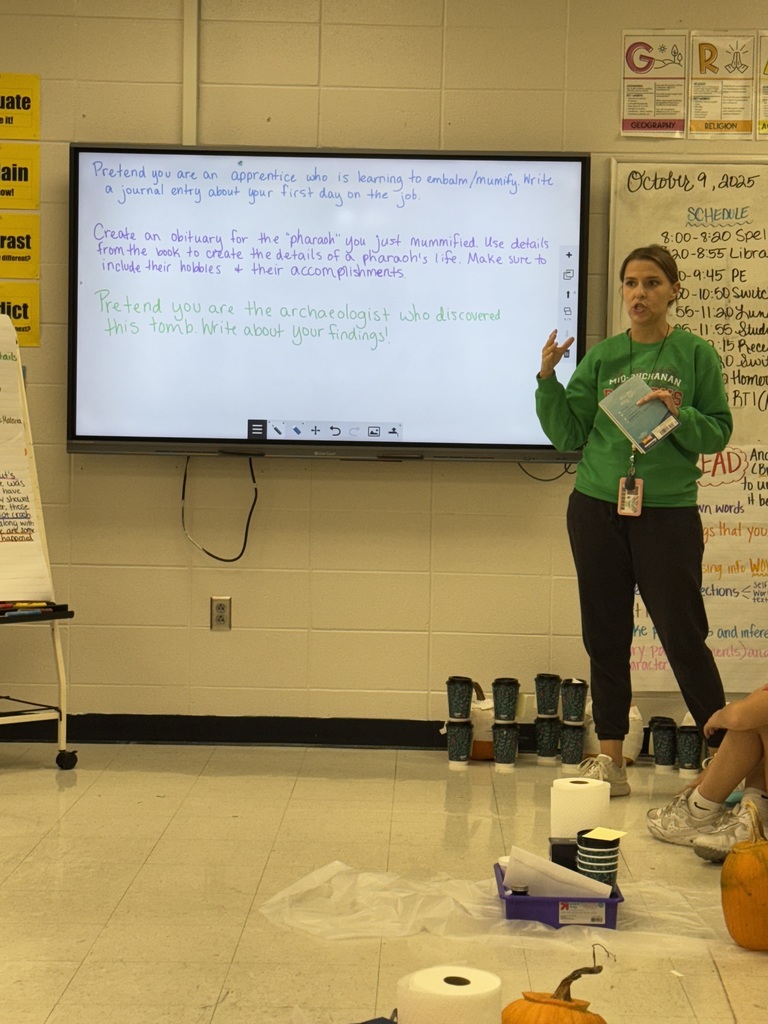 Pretend you are an apprentice who is learning to embalm/mumify. Write
a journal entry about your first day on the job.
Create an obituary for the "pharaoh" you just mummified. Use details
from the book to create the details of a pharaoh's life. Make sure to
include their hobbies & their accomplishments.
Pretend you are the archaeologist who discovered
this tomb. Write about your findings!
G
GEOGRAPHY
R
RELIGION
October 9, 2025
SCHEDULE
8:00-8:20 Spel
20-8:55 Libra
0-9:45 PE
50-10:50 Switc
55-11:20 Lun
5-11:55 Stud
2:15 Rece
20 Swit
Homer
RTI(
EAD
to u
it b
wn words
gs that you
sing into Wo
ections
self
Wor
text
ke p
s and infere
ry po
ments) and
aracter
MID-BUCHANAN
uate
e it!
ain
ow!
rast
different?
dict
next?
tails
ut's
was
have
y showed
r, these
along with
are some
happened